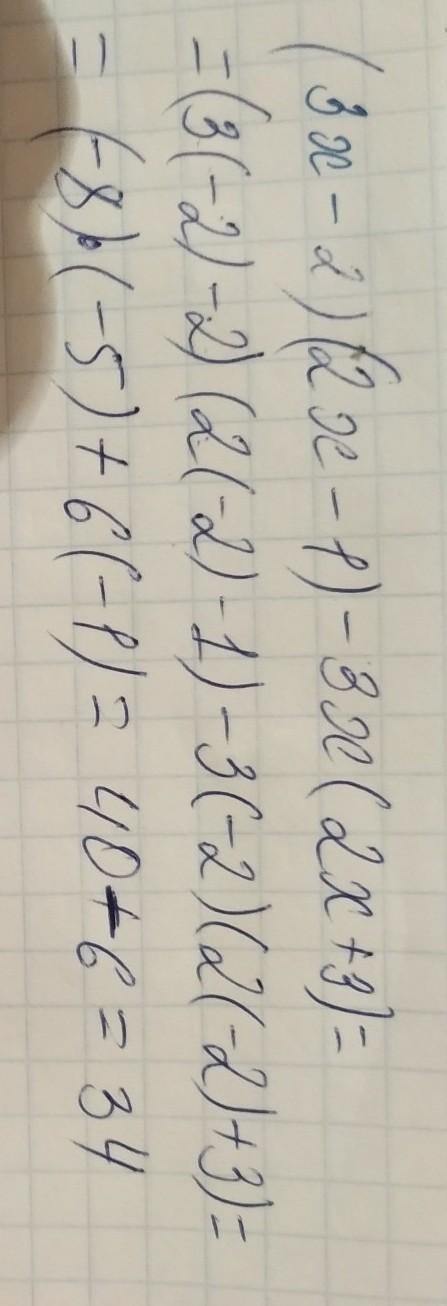 (3x-2)(2x-1)-3x(2x+3)=
=(3(-2)-2)(2(-2)-1)-3(-2)(2(-2)+3)=
=(-8)·(-5)+6(-1)=40-6=34